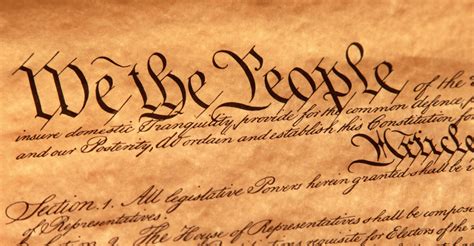 We the People of the
insure domestic Tranquility, provide for the common defence,
and our Posterity, do ordain and establish this Constitution fo
Article
Section 1. All legislative Powers herein granted shall be
of Representatives.
The House of Representatives shall be compo
requisite for Electors of the